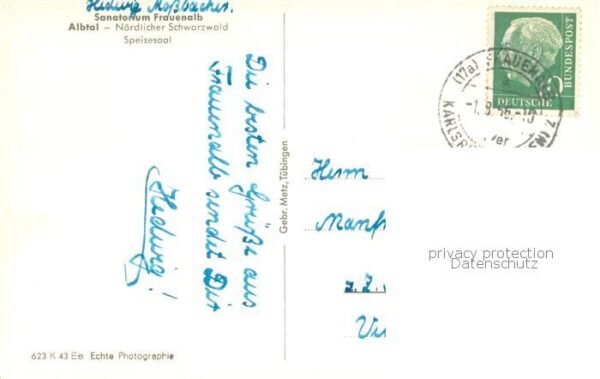 Hedwig Moßbacher.
Sanatorium Frauenalb
Albtal – Nördlicher Schwarzwald
Speisesaal
Die besten Grüße aus
Frauenalb sendet Dir
Hedwig!
Gebr. Metz, Tübingen
DEUTSCHE
BUNDESPOST
(17a) FRAUENALB
-1.8.56.-10
KARLSR
Herrn
Manf
z.Z.
privacy protection
Datenschutz
623 K 43 Ee Echte Photographie